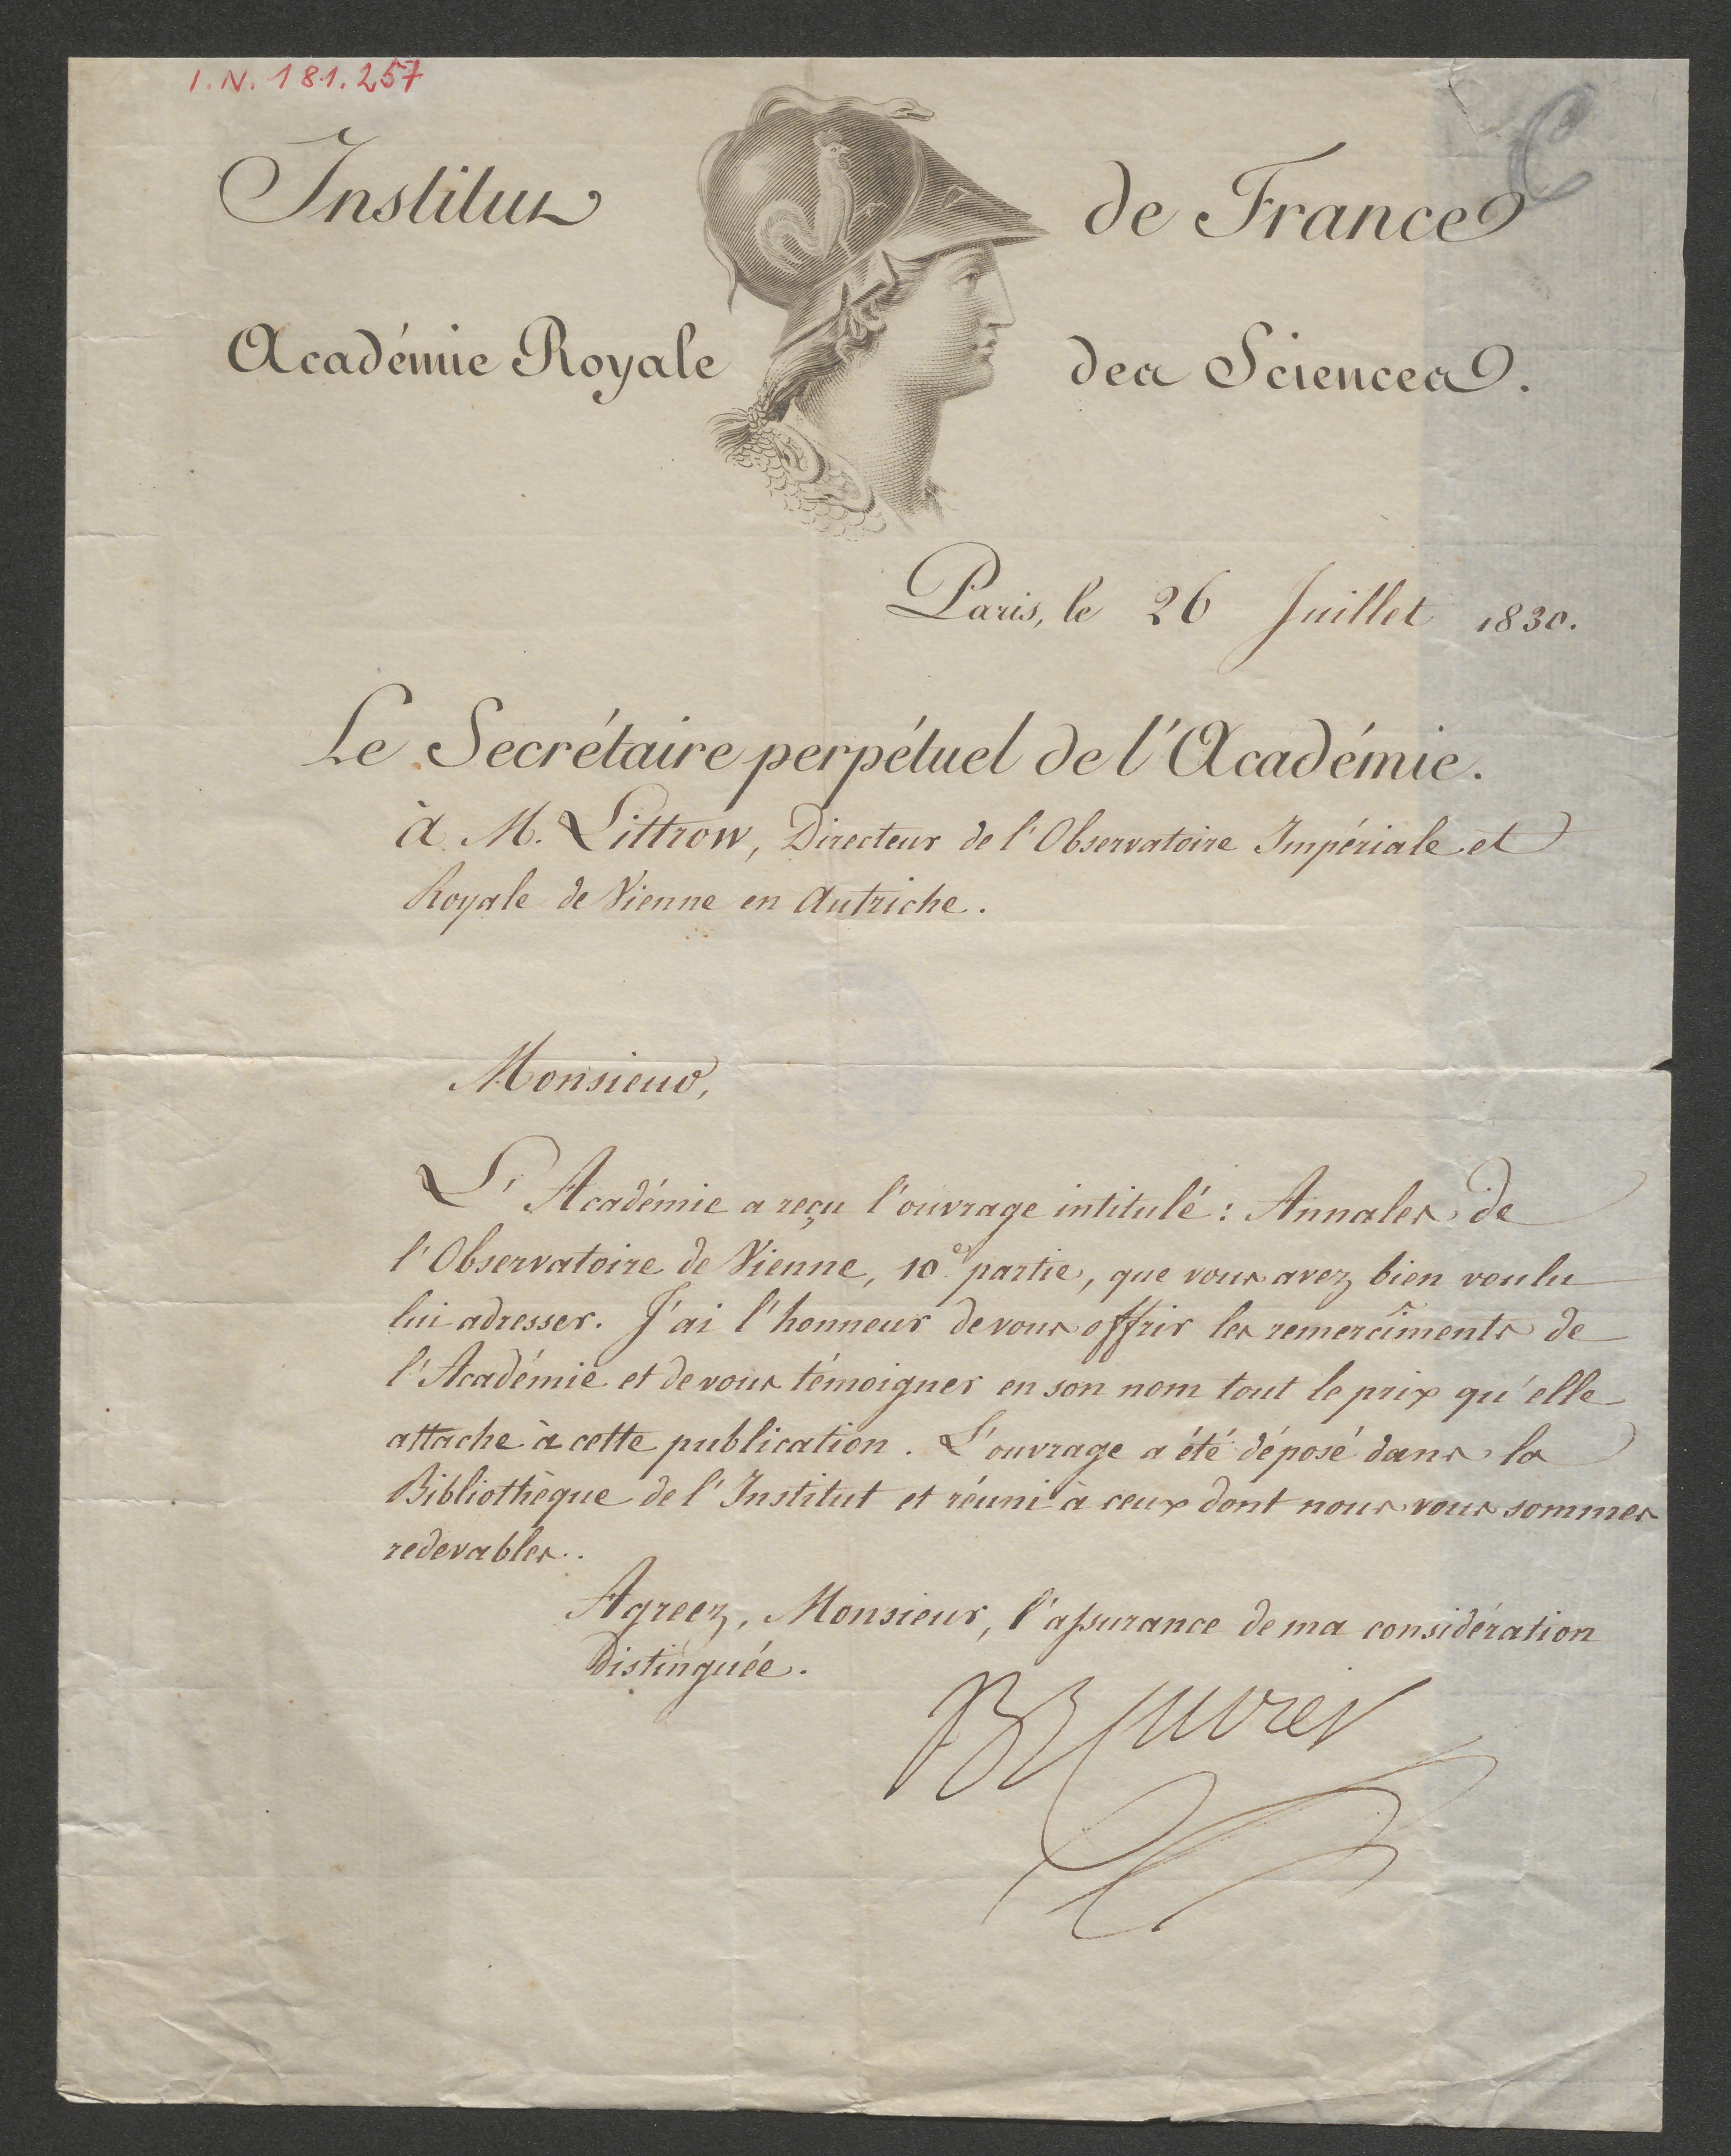 I.N. 181.257
Institut de France
Académie Royale des Sciences.
Paris, le 26 Juillet 1830.
Le Secrétaire perpétuel de l'Académie.
à M. Littrow, Directeur de l'Observatoire Impériale et
Royale de Vienne en Autriche.
Monsieur,
L'Académie a reçu l'ouvrage intitulé : Annales de
l'Observatoire de Vienne, 10.e partie, que vous avez bien voulu
lui adresser. J'ai l'honneur de vous offrir les remercîments de
l'Académie et de vous témoigner en son nom tout le prix qu'elle
attache à cette publication. L'ouvrage a été déposé dans la
Bibliothèque de l'Institut et réuni à ceux dont nous vous sommes
redevables.
Agreez, Monsieur, l'assurance de ma considération
Distinguée.
B Cuvier